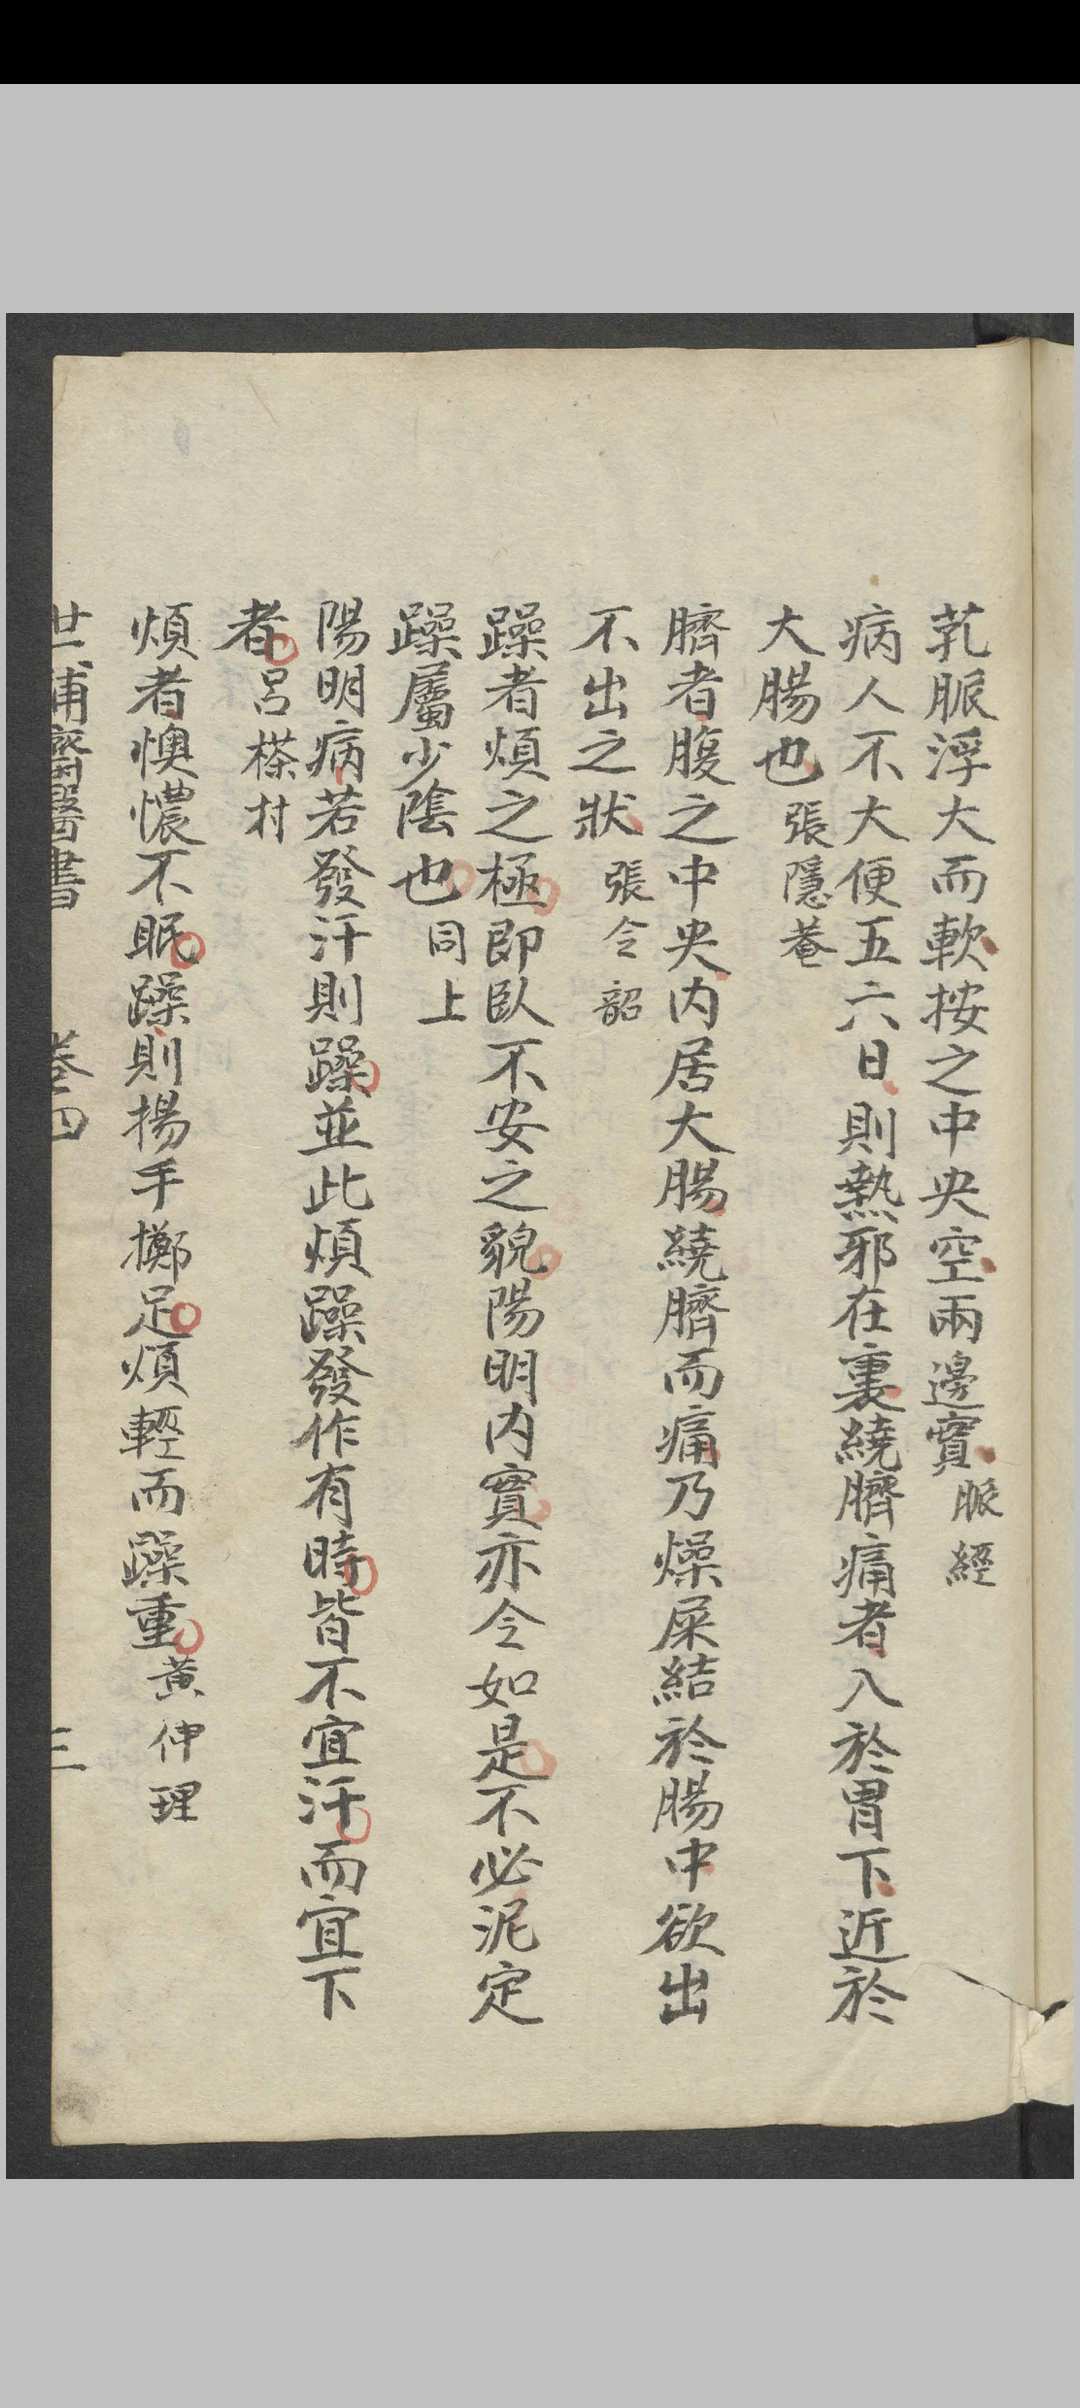 芤脈浮大而軟按之中央空兩邊實脈經
病人不大便五六日則熱邪在裏繞臍痛者入於胃下近於
大腸也張隱菴
臍者腹之中央内居大腸繞臍而痛乃燥屎結於腸中欲出
不出之狀張令韶
躁者煩之極即臥不安之貌陽明内實亦令如是不必泥定
躁屬少陰也同上
陽明病若發汗則躁並此煩躁發作有時皆不宜汗而宜下
者呂㯼村
煩者懊憹不眠躁則揚手擲足煩輕而躁重黃仲理
世補齋醫書 卷四 三